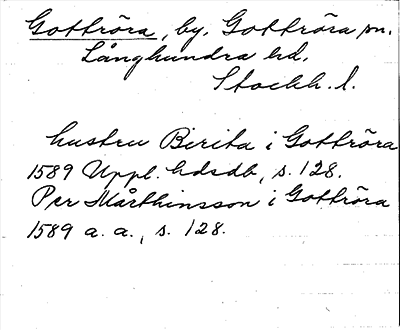 Gottröra, by. Gottröra sn.
Långhundra hd.
Stockh. l.
hustru Birita i Gottröra
1589 Uppl. hdsdb, s. 128.
Per Mårthinsson i Gottröra
1589 a. a., s. 128.